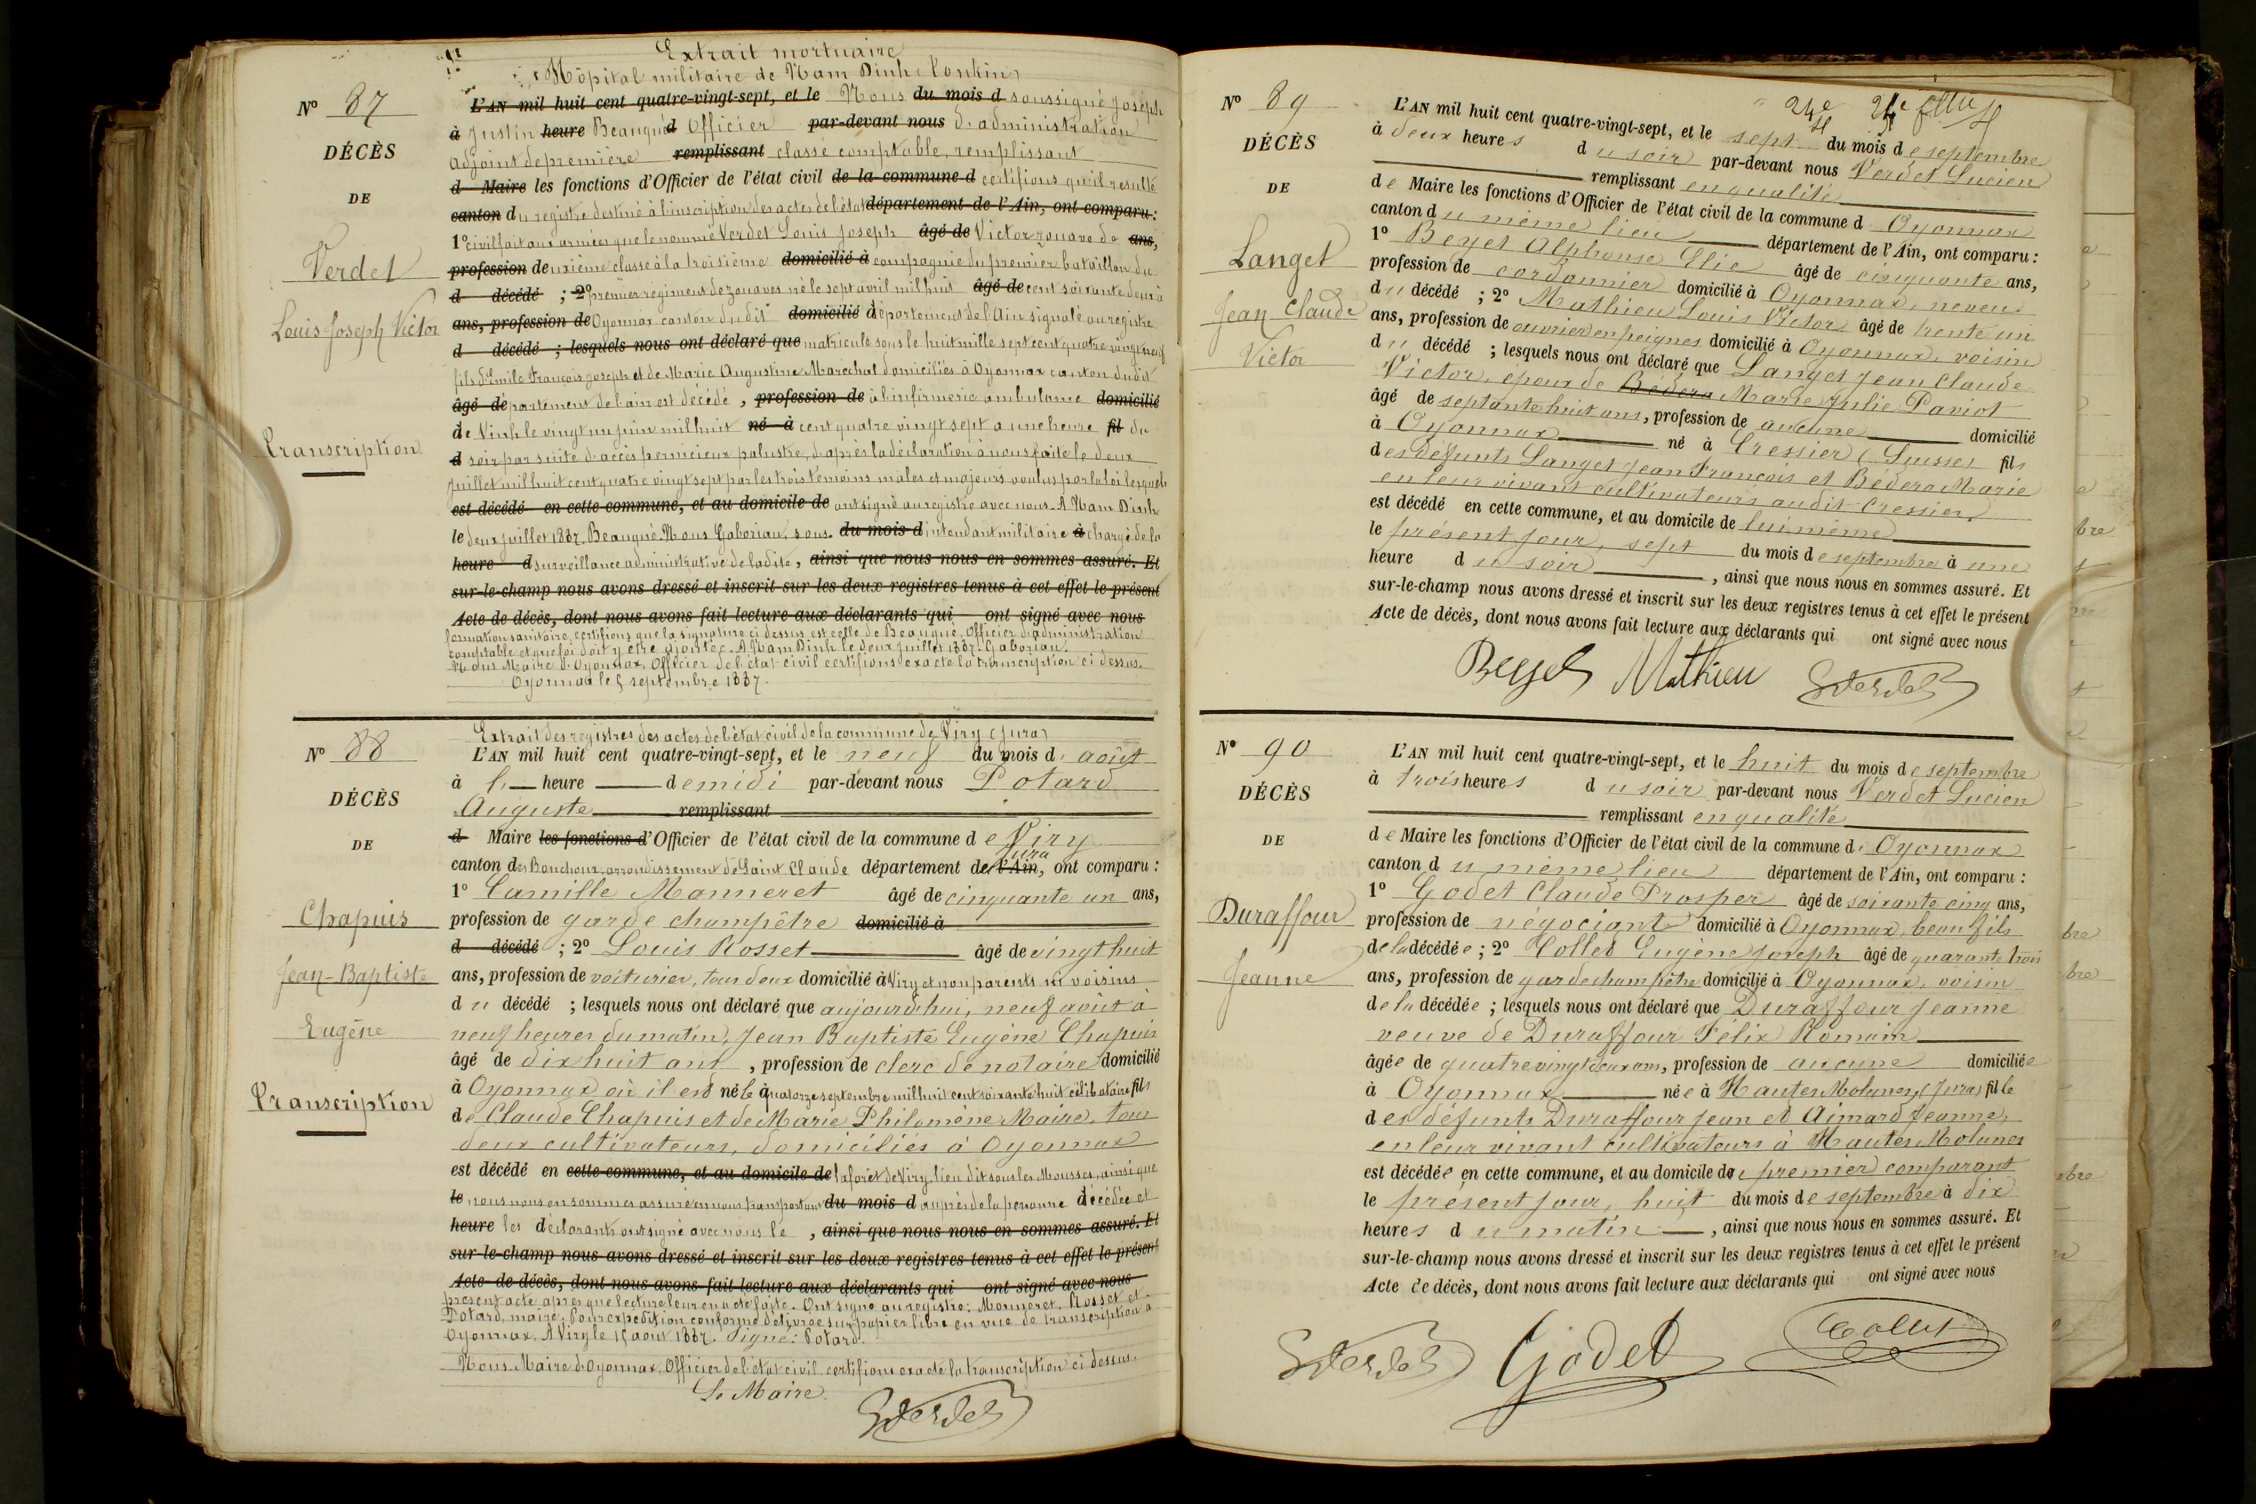 Extrait mortuaire
Hôpital militaire de Nam Dinh (Tonkin)
N° 87
L'AN mil huit cent quatre-vingt-sept, et le Nous du mois d soussigné Joseph
à Justin heure Beaugué d Officier par-devant nous d'administration
DÉCÈS
adjoint de première remplissant classe comptable, remplissant
d Maire les fonctions d'Officier de l'état civil de la commune d certifions qu'il résulte
DE
canton du registre destiné à l'inscription des actes de l'état département de l'Ain, ont comparu :
1° civil fait aux armées que le nommé Verdet Louis Joseph âgé de Victor zouave de ans,
Verdet
profession deuxième classe à la troisième domicilié à compagnie du premier bataillon du
d décédé ; 2° premier régiment de zouaves né le sept avril mil huit âgé de cent soixante deux à
Louis Joseph Victor
ans, profession de Oyonnax canton du dit domicilié département de l'Ain signalé au registre
d décédé ; lesquels nous ont déclaré que matricule sous le huit mille sept cent quatre vingt neuf
fils d'Emile François Joseph et de Marie Augustine Maréchal domiciliés à Oyonnax canton du dit
âgé département de l'ain est décédé , profession de à l'infirmerie ambulance domicilié
de Vinh le vingt un juin mil huit né à cent quatre vingt sept a une heure fil du
Transcription
d soir par suite d'accès pernicieux palustre, d'après la déclaration à nous faite le deux
juillet mil huit cent quatre vingt sept par les trois témoins mâles et majeurs voulus par la loi lesquels
est décédé en cette commune, et au domicile de ont signé au registre avec nous. A Nam Dinh
le deux juillet 1887. Beaugué. Nous Gaboriau, sous du mois d intendant militaire à chargé de la
heure d surveillance administrative de ladite , ainsi que nous nous en sommes assuré. Et
sur-le-champ nous avons dressé et inscrit sur les deux registres tenus à cet effet le présent
Acte de décès, dont nous avons fait lecture aux déclarants qui ont signé avec nous
formation sanitaire, certifions que la signature ci dessus est celle de Beaugué, Officier d'administration
comptable et que foi doit y être ajoutée. A Nam Dinh le deux juillet 1887. Gaboriau.
Nous Maire d'Oyonnax, Officier de l'état-civil certifions exacte la transcription ci dessus.
Oyonnax le 5 septembre 1887.
Extrait des registres des actes de l'état civil de la commune de Viry (Jura)
N° 88
L'AN mil huit cent quatre-vingt-sept, et le neuf du mois d' août
à heure de midi par-devant nous Potard
DÉCÈS
Auguste remplissant
d Maire les fonctions d'Officier de l'état civil de la commune de Viry
DE
Jura
canton des Bouchoux, arrondissement de Saint Claude département de l'Ain, ont comparu :
1° Camille Monneret âgé de cinquante un ans,
Chapuis
profession de garde champêtre domicilié à
d décédé ; 2° Louis Rosset âgé de vingt huit
Jean-Baptiste
ans, profession de voiturier, tous deux domicilié à Viry et non parents ni voisins
du décédé ; lesquels nous ont déclaré que aujourd'hui, neuf août à
Eugène
neuf heures du matin, Jean Baptiste Eugène Chapuis
âgé de dix huit ans , profession de clerc de notaire domicilié
à Oyonnax où il est né le à quatorze septembre mil huit cent soixante huit célibataire fils
Transcription
de Claude Chapuis et de Marie Philomène Maire, tous
deux cultivateurs, domiciliés à Oyonnax
est décédé en cette commune, et au domicile de la forêt de Viry, lieu dit sous les Mousses, ainsi que
le nous nous en sommes assuré en nous transportant du mois d auprès de la personne décédée et
heure les déclarants ont signé avec nous le , ainsi que nous nous en sommes assuré. Et
sur-le-champ nous avons dressé et inscrit sur les deux registres tenus à cet effet le présent
Acte de décès, dont nous avons fait lecture aux déclarants qui ont signé avec nous
présent acte après que lecture leur en a été faite. Ont signé au registre : Monneret, Rosset et
Potard, maire. Pour expédition conforme délivrée sur papier libre en vue de transcription à
Oyonnax. A Viry le 15 août 1887. Signé : Potard.
Nous Maire d'Oyonnax, Officier de l'état civil certifions exacte la transcription ci dessus.
Le Maire
Verdet
N° 89
L'AN mil huit cent quatre-vingt-sept, et le sept du mois de septembre
à deux heures du soir par-devant nous Verdet Lucien
DÉCÈS
remplissant en qualité
DE
de Maire les fonctions d'Officier de l'état civil de la commune d Oyonnax
canton du même lieu département de l'Ain, ont comparu :
Langet
1° Beyet Alphonse Elie âgé de cinquante ans,
profession de cordonnier domicilié à Oyonnax, neveu
Jean Claude
du décédé ; 2° Mathieu Louis Victor âgé de trente un
ans, profession de ouvrier en peignes domicilié à Oyonnax, voisin
Victor
du décédé ; lesquels nous ont déclaré que Langet Jean Claude
Victor, époux de Bedera Marie Julie Paviot
âgé de septante huit ans, profession de aucune domicilié
à Oyonnax né à Cressier (Suisse) fils
des défunts Langet Jean François et Bédera Marie
en leur vivant cultivateurs audit Cressier.
est décédé en cette commune, et au domicile de lui même
le présent jour, sept du mois de septembre à une
heure du soir , ainsi que nous nous en sommes assuré. Et
sur-le-champ nous avons dressé et inscrit sur les deux registres tenus à cet effet le présent
Acte de décès, dont nous avons fait lecture aux déclarants qui ont signé avec nous
Beyet Mathieu Verdet
N° 90
L'AN mil huit cent quatre-vingt-sept, et le huit du mois de septembre
à trois heures du soir par-devant nous Verdet Lucien
DÉCÈS
remplissant en qualité
DE
de Maire les fonctions d'Officier de l'état civil de la commune d' Oyonnax
canton du même lieu département de l'Ain, ont comparu :
1° Godet Claude Prosper âgé de soixante cinq ans,
Duraffour
profession de négociant domicilié à Oyonnax, beau fils
de la décédée ; 2° Collet Eugène Joseph âgé de quarante trois
Jeanne
ans, profession de garde champêtre domicilié à Oyonnax, voisin
de la décédée ; lesquels nous ont déclaré que Duraffour Jeanne
veuve de Duraffour Félix Romain
âgée de quatre vingt deux ans, profession de aucune domiciliée
à Oyonnax née à Hautes Molunes, (Jura) fille
des défunts Duraffour Jean et Aimard Jeanne,
en leur vivant cultivateurs à Hautes Molunes
est décédée en cette commune, et au domicile du premier comparant
le présent jour, huit du mois de septembre à dix
heures du matin , ainsi que nous nous en sommes assuré. Et
sur-le-champ nous avons dressé et inscrit sur les deux registres tenus à cet effet le présent
Acte de décès, dont nous avons fait lecture aux déclarants qui ont signé avec nous
Verdet Godet Collet